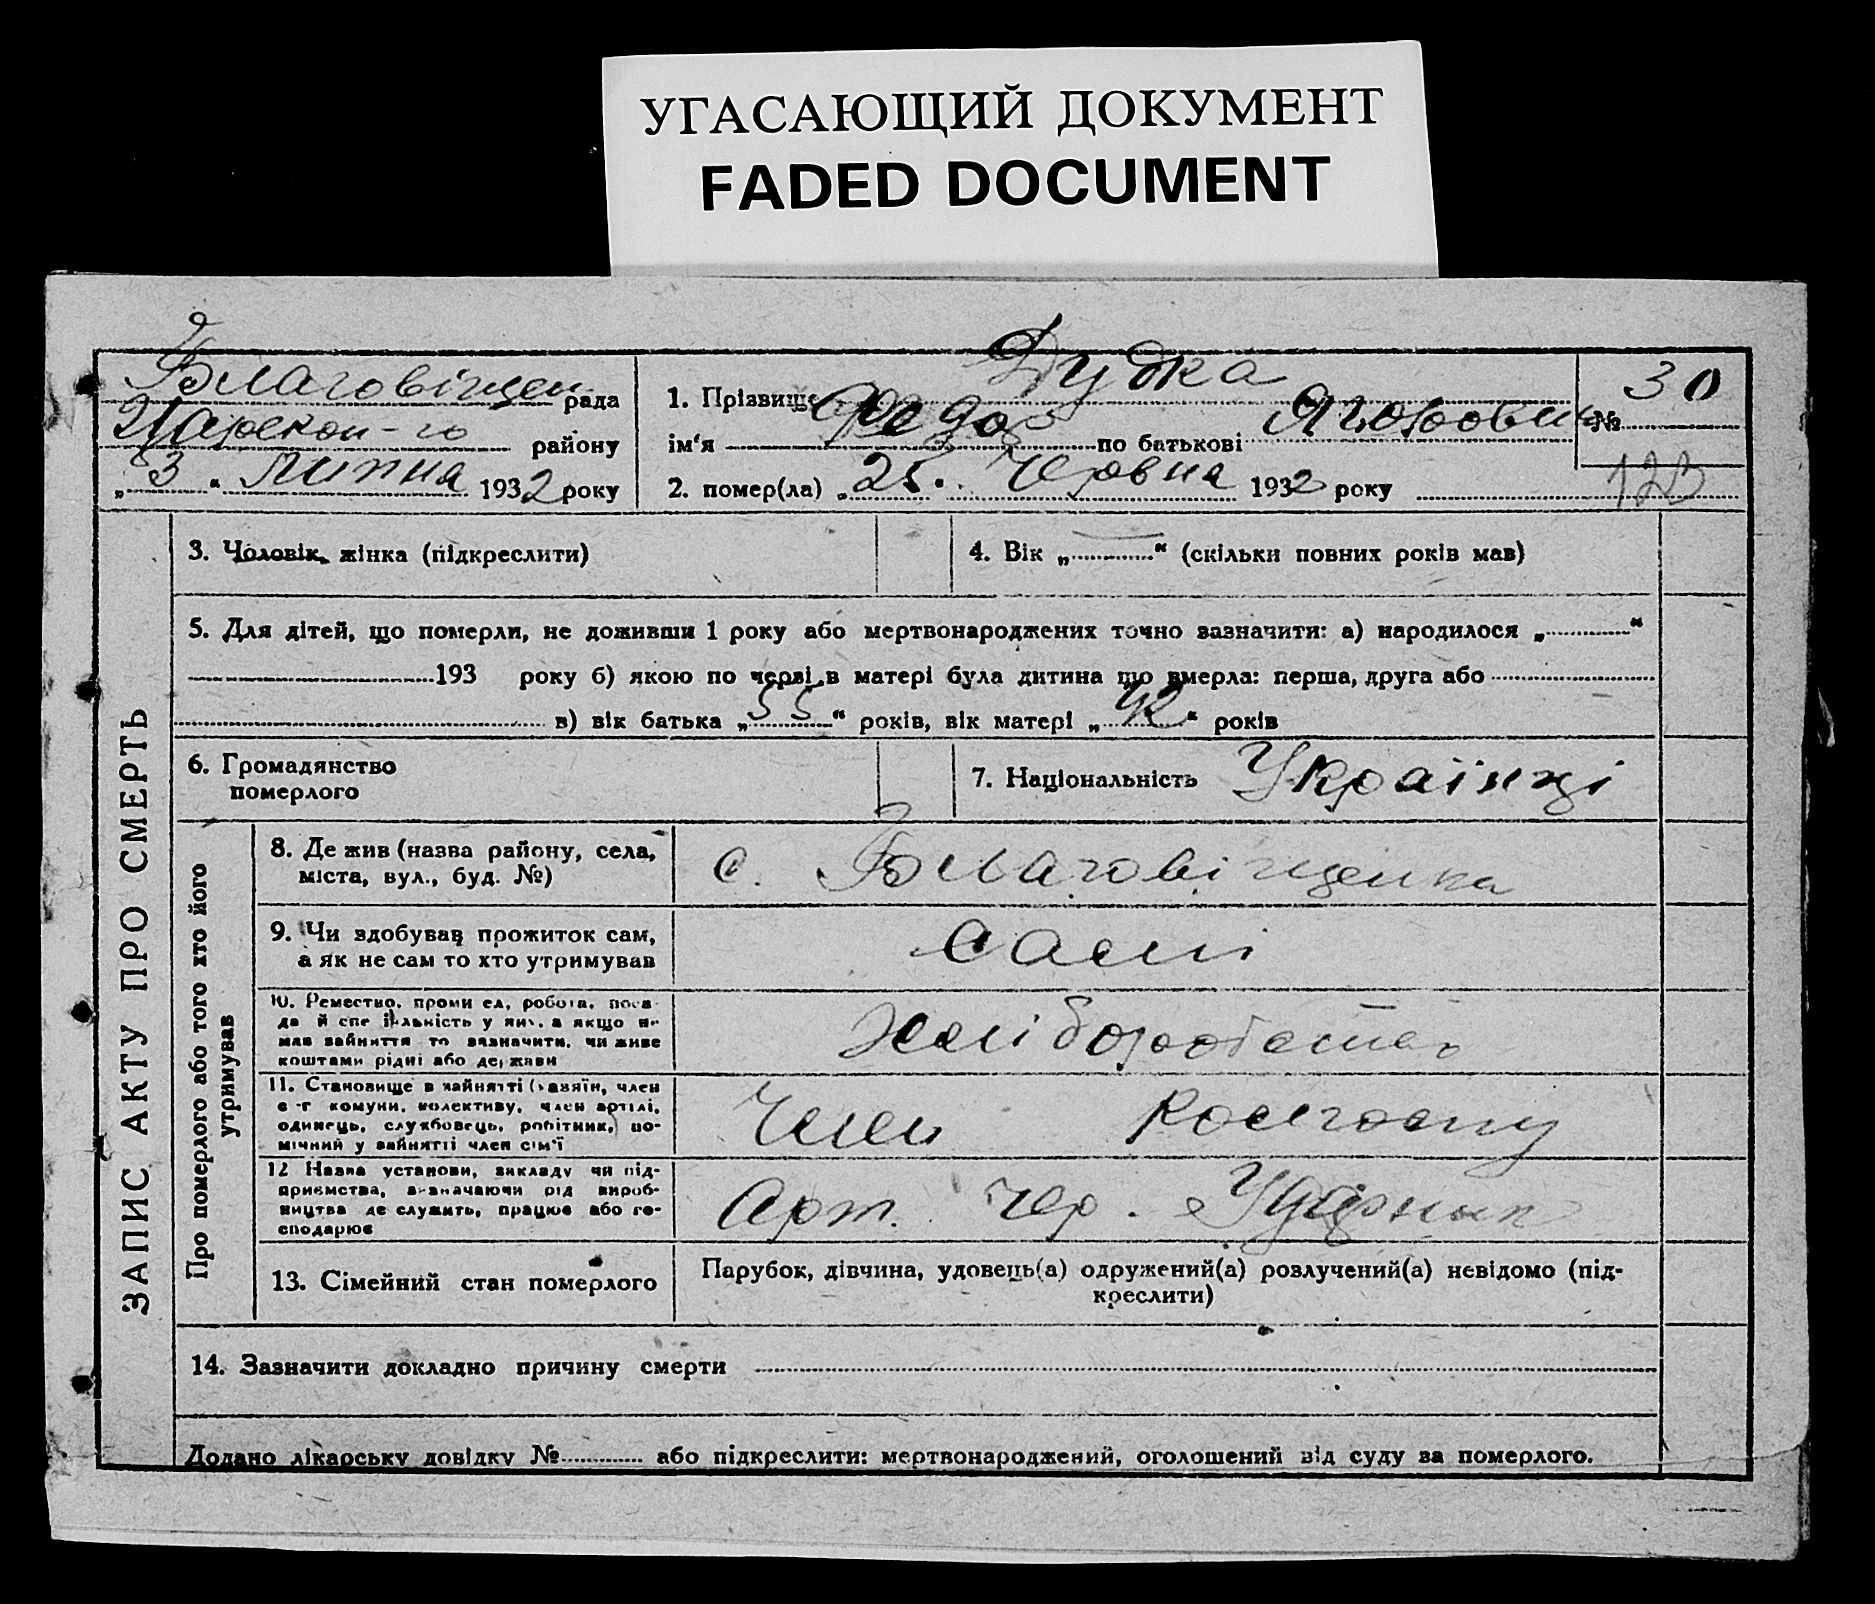 УГАСАЮЩИЙ ДОКУМЕНТ
FADED DOCUMENT
Благовіщен рада
району
„3“ липня 1932 року
1. Прізвище Дудка
ім'я Федор по батькові
2. помер(ла) „25. червня 1932 року
30
№
123
ЗАПИС АКТУ ПРО СМЕРТЬ
3. Чоловік, жінка (підкреслити)
4. Вік „ “ (скільки повних років мав)
5. Для дітей, що померли, не доживши 1 року або мертвонароджених точно зазначити: а) народилося „ “
193 року б) якою по черзі в матері була дитина що вмерла: перша, друга або
в) вік батька „55“ років, вік матері „42“ років
6. Громадянство
померлого
7. Національність Українці
Про померлого або того хто його
утримував
8. Де жив (назва району, села,
міста, вул., буд. №)
с. Благовіщенка
9. Чи здобував прожиток сам,
а як не сам то хто утримував
самі
10. Ремество, промисел, робота, поса-
да й спеціяльність у них, а якщо не
мав зайняття то зазначити, чи живе
коштами рідні або держави
11. Становище в зайнятті (хазяїн, член
с-г комуни, колективу, член артілі,
одинець, службовець, робітник, по-
мічний у зайнятті член сім'ї
Член колгоспу
12 Назва установи, закладу чи під-
приємства, зазначаючи рід вироб-
ництва де служить, працює або го-
сподарює
Арт. Чер. Ударник
13. Сімейний стан померлого
Парубок, дівчина, удовець(а) одружений(а) розлучений(а) невідомо (під-
креслити)
14. Зазначити докладно причину смерти
Додано лікарську довідку № або підкреслити: мертвонароджений, оголошений від суду за померлого.